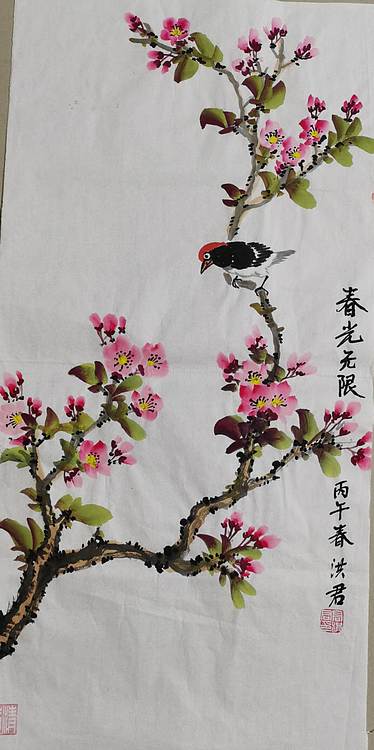 春光无限
丙午春 洪君